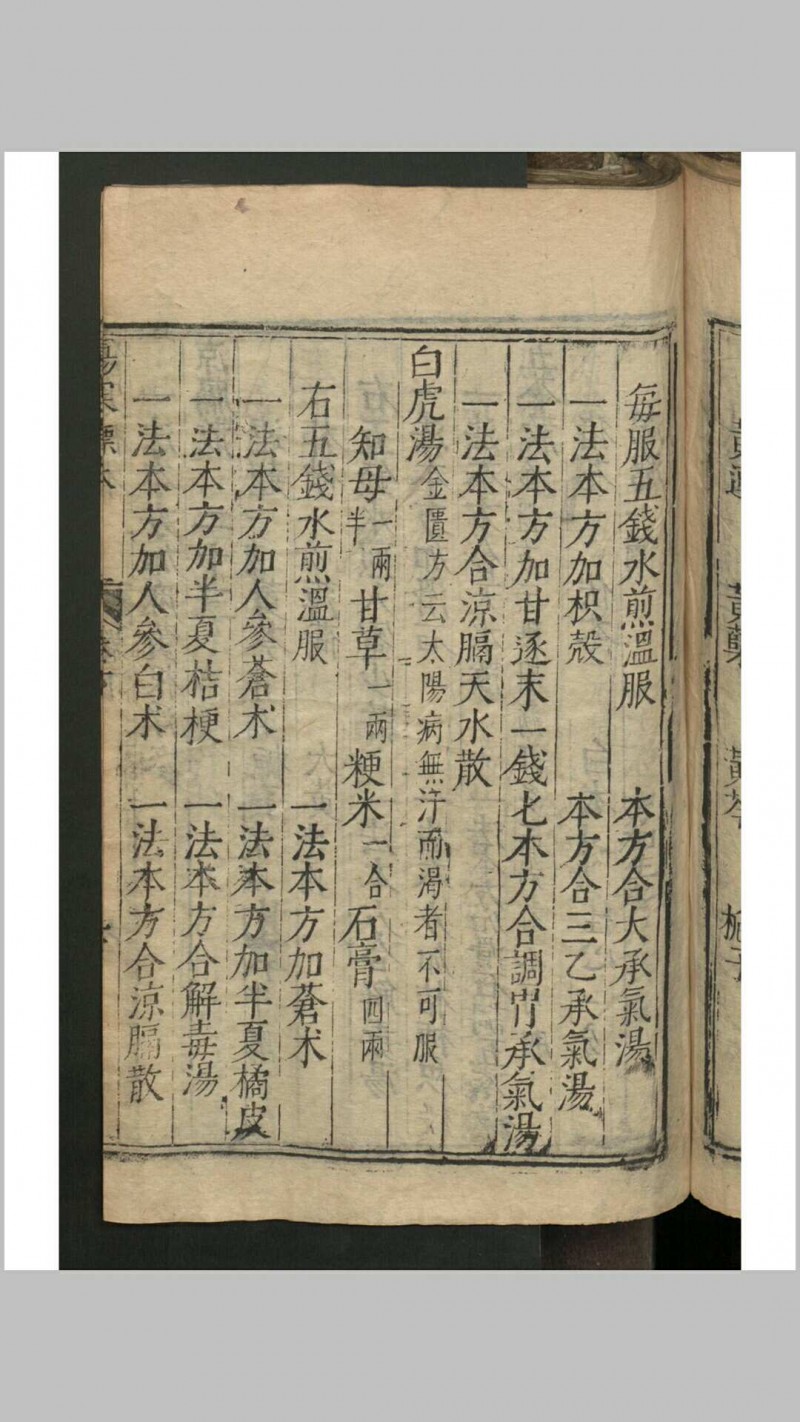 黃芩
每服五錢水煎溫服　本方合大承氣湯
一法本方加枳殼　本方合三乙承氣湯
一法本方加甘逐末一錢匕本方合調胃承氣湯
一法本方合涼膈天水散
白虎湯金匱方云太陽病無汗而渴者不可服
知母一兩半甘草一兩粳米一合石膏四兩
右五錢水煎溫服　一法本方加蒼朮
一法本方加人參蒼朮　一法本方加半夏橘皮
一法本方加半夏桔梗　一法本方合解毒湯
一法本方加人參白朮　一法本方合涼膈散